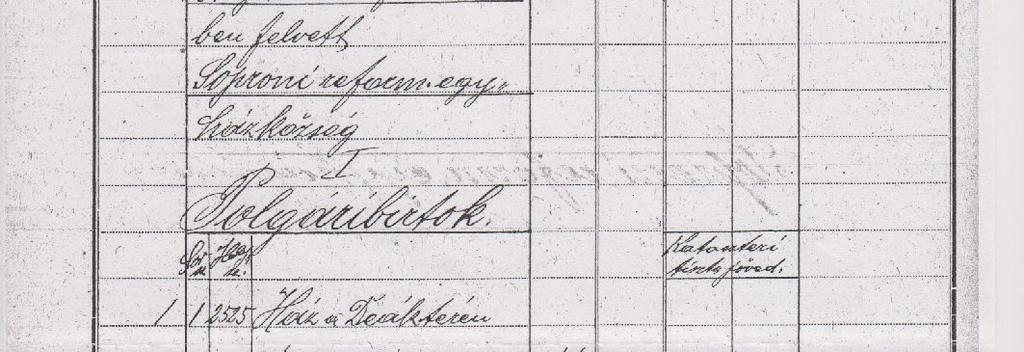 ben felvett
Soproni reform. egy„
házközség
I
Polgáribirtok.
Sor Hely Kataszteri
sz. sz. tiszta jöved.
1 1 2525 Ház a Deáktéren